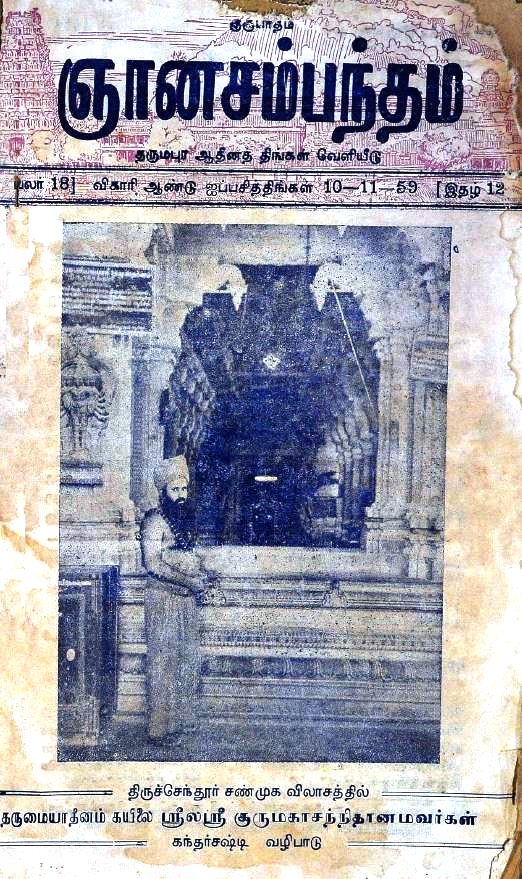 குருபாதம்
ஞானசம்பந்தம்
தருமபுர ஆதீனத் திங்கள் வெளியீடு
மலா 18] விகாரி ஆண்டு ஐப்பசித்திங்கள் 10—11—59 [இதழ் 12
திருச்செந்தூர் சண்முக விலாசத்தில்
தருமையாதீனம் கயிலை ஸ்ரீலஸ்ரீ குருமகாசந்நிதானமவர்கள்
கந்தர்சஷ்டி வழிபாடு